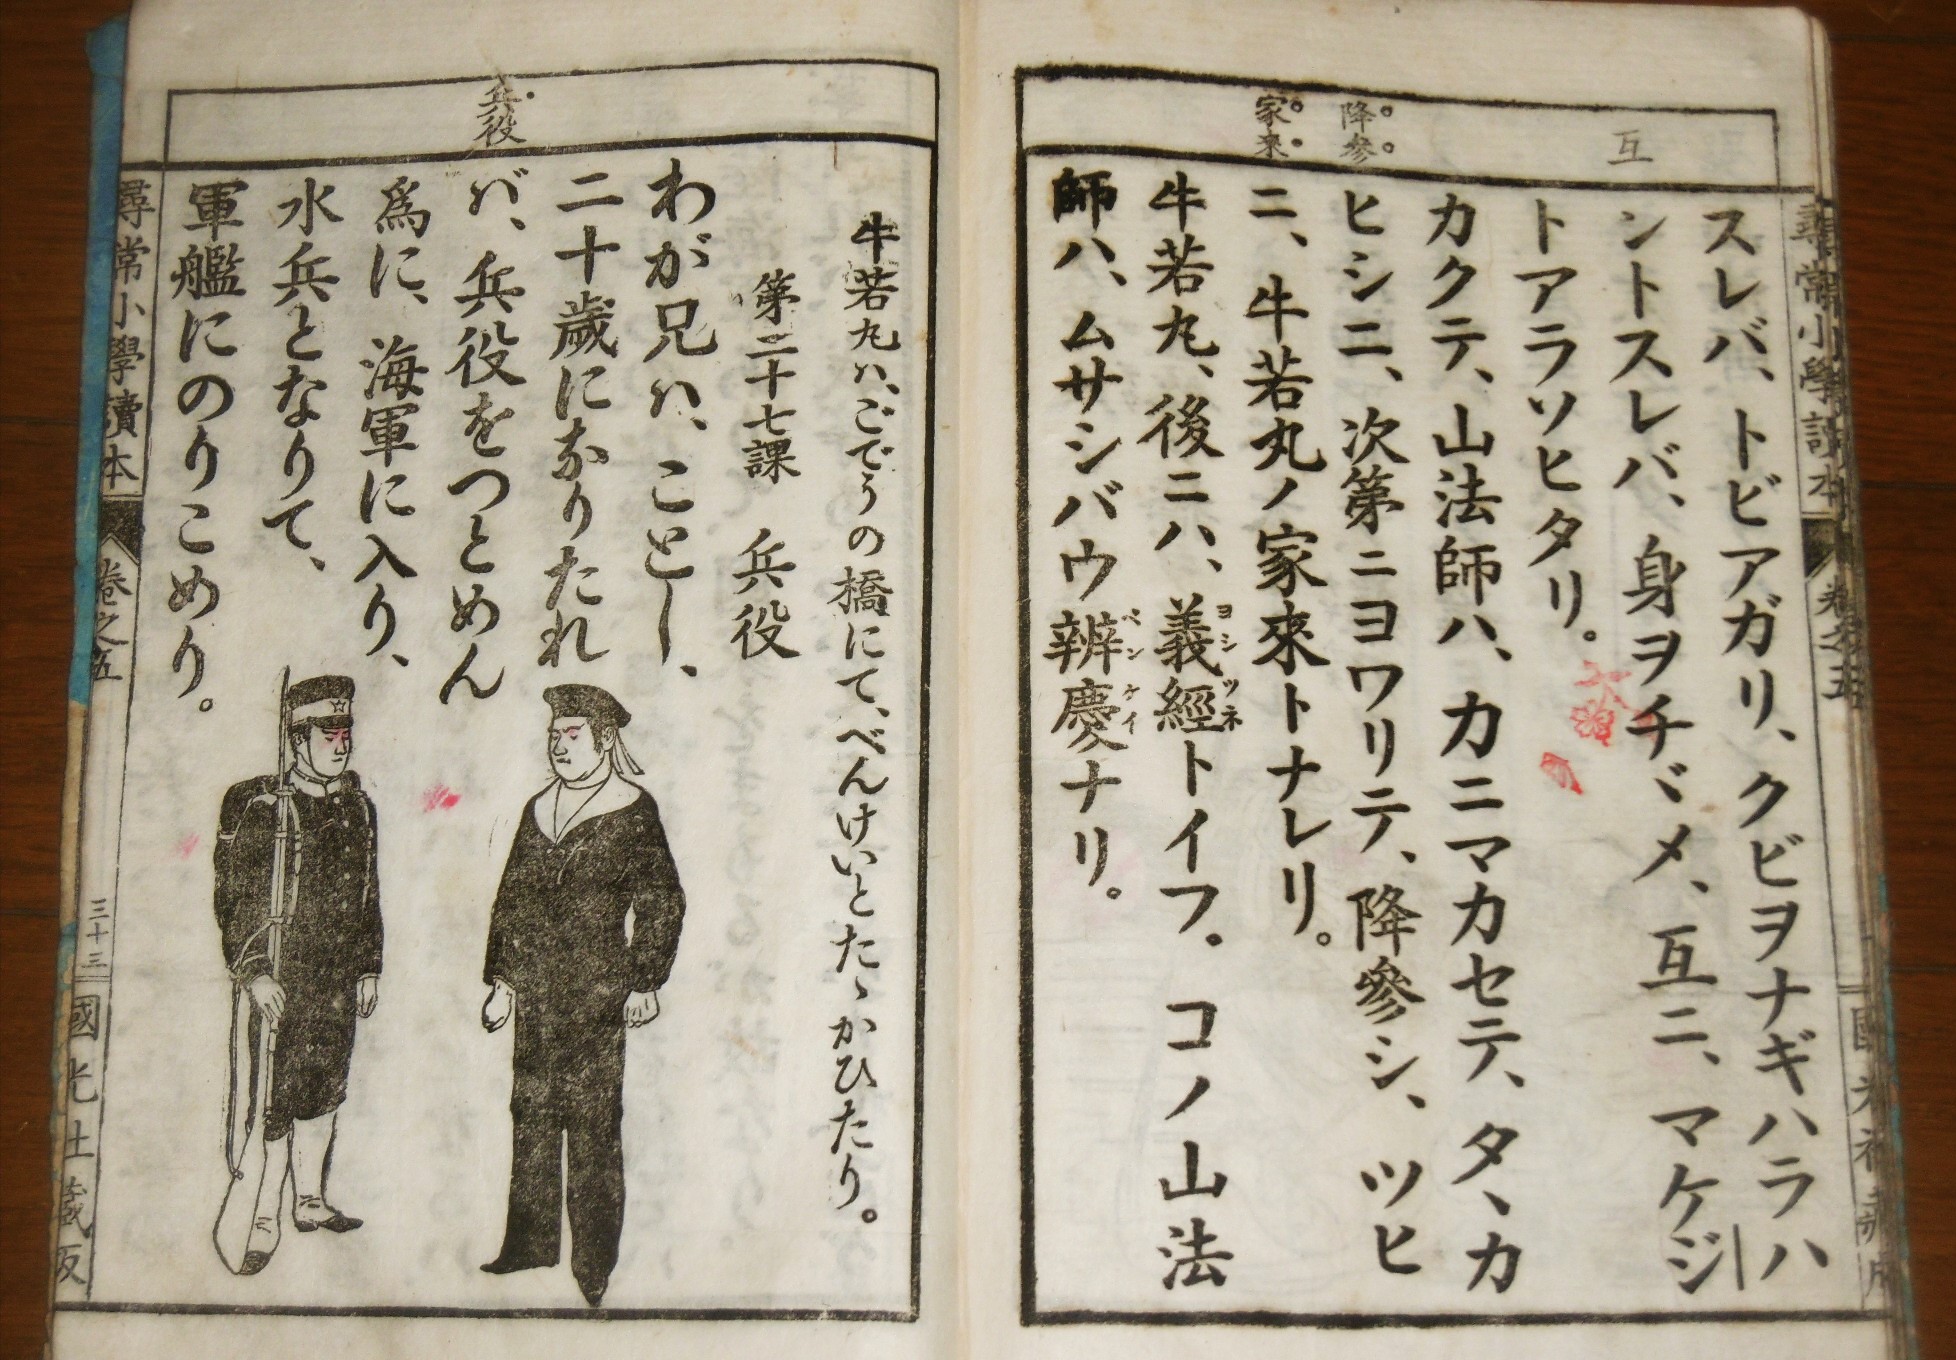 互
降參
家來
スレバ、トビアガリ、クビヲナギハラハ
ントスレバ、身ヲチヾメ、互ニ、マケジ
トアラソヒタリ。
カクテ、山法師ハ、カニマカセテ、タヽカ
ヒシニ、次第ニヨワリテ、降參シ、ツヒ
ニ、牛若丸ノ家來トナレリ。
牛若丸、後ニハ、義經トイフ。コノ山法
ヨシツネ
師ハ、ムサシバウ辨慶ナリ。
ベンケイ
尋常小學讀本
卷之五
兵役
牛若丸ハ、ごでうの橋にて、べんけいとたゝかひたり。
第二十七課 兵役
わが兄ハ、ことし、
二十歲になりたれ
バ、兵役をつとめん
爲に、海軍に入り、
水兵となりて、
軍艦にのりこめり。
尋常小學讀本
卷之五
三十三
國光社藏版